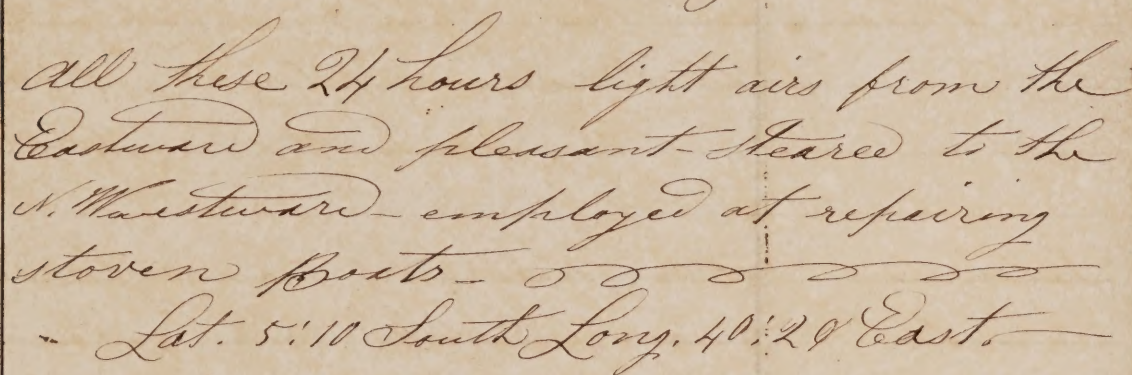 all these 24 hours light airs from the
Eastward and pleasant - steared to the
N. Westward - employed at repairing
stoven Boats -
Lat. 5:10 South Long. 40:20 East.